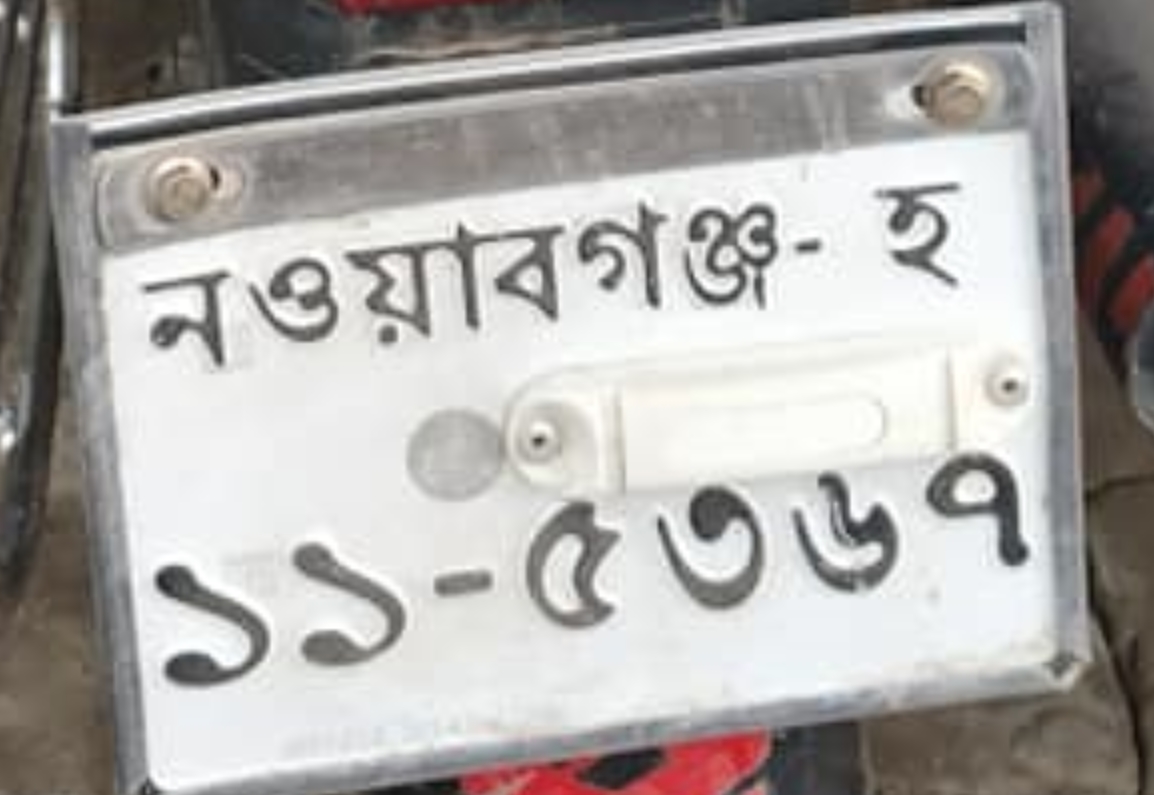 নওয়াবগঞ্জ- হ
১১-৫৩৬৭